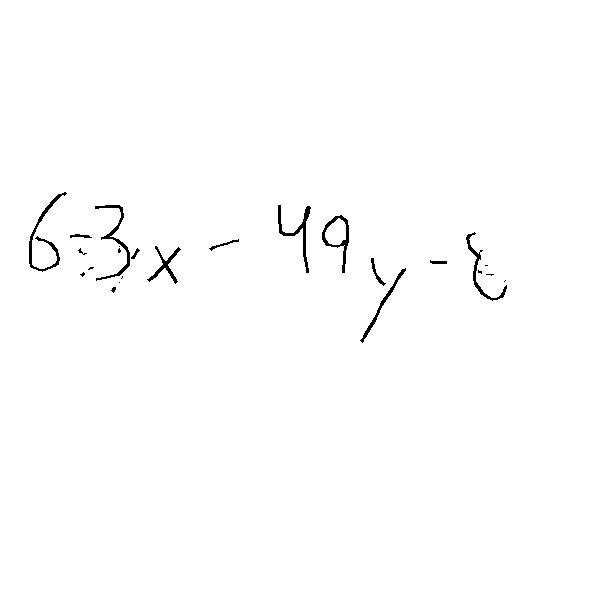 6-3x - 49y -